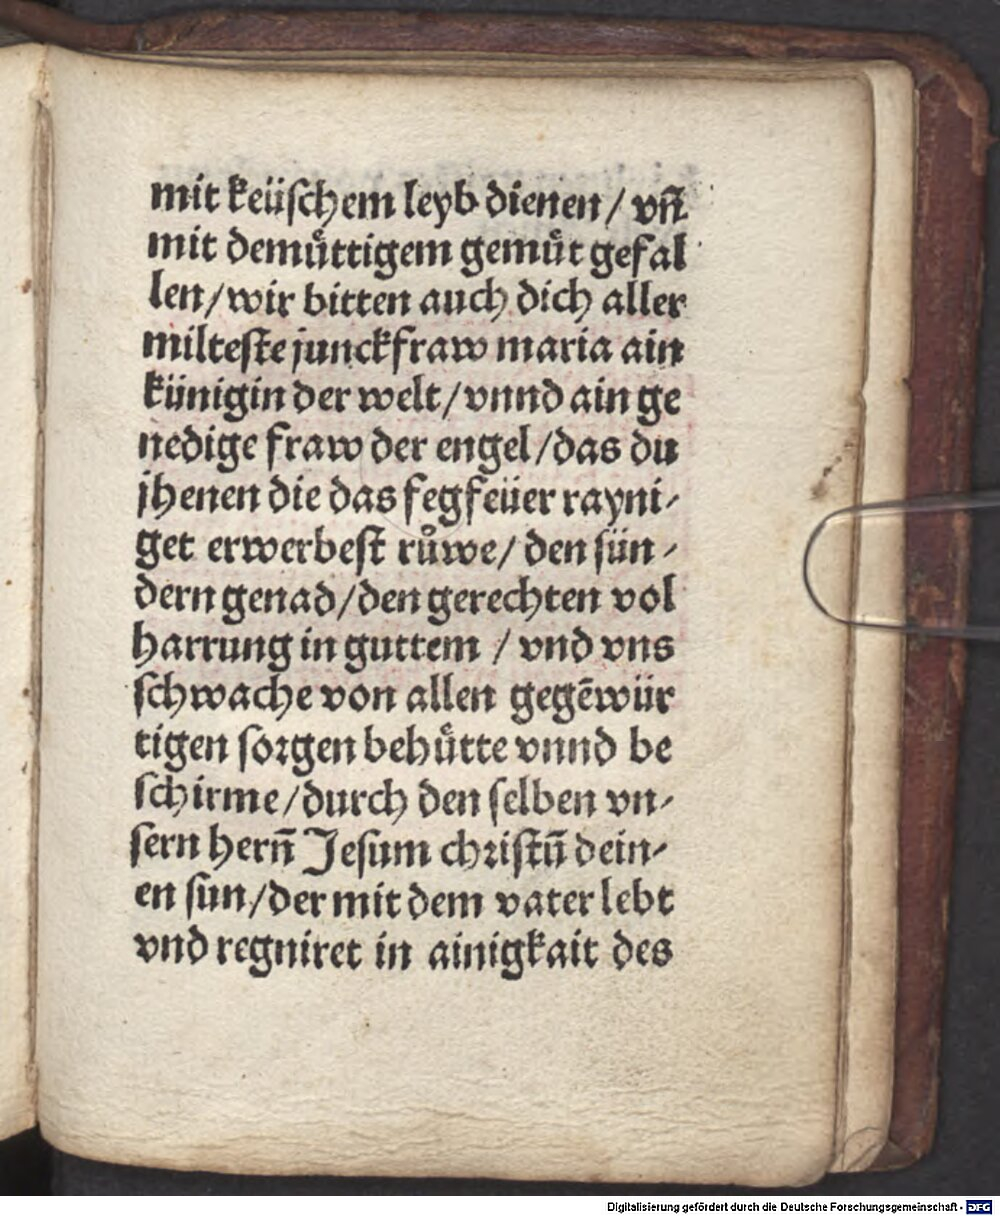 mit keüschem leyb dienen / vn̄
mit demuͤttigem gemuͤt gefal
len / wir bitten auch dich aller
milteste junckfraw maria ain
künigin der welt / vnnd ain ge
nedige fraw der engel / das du
jhenen die das fegfeüer rayni⸗
get erwerbest růwe / den sün⸗
dern genad / den gerechten vol
harrung in guttem / vnd vns
schwache von allen gegēwür
tigen sorgen behuͤtte vnnd be
schirme / durch den selben vn⸗
sern hern̄ Jesum christū dein⸗
en sun / der mit dem vater lebt
vnd regniret in ainigkait des
Digitalisierung gefördert durch die Deutsche Forschungsgemeinschaft - DFG